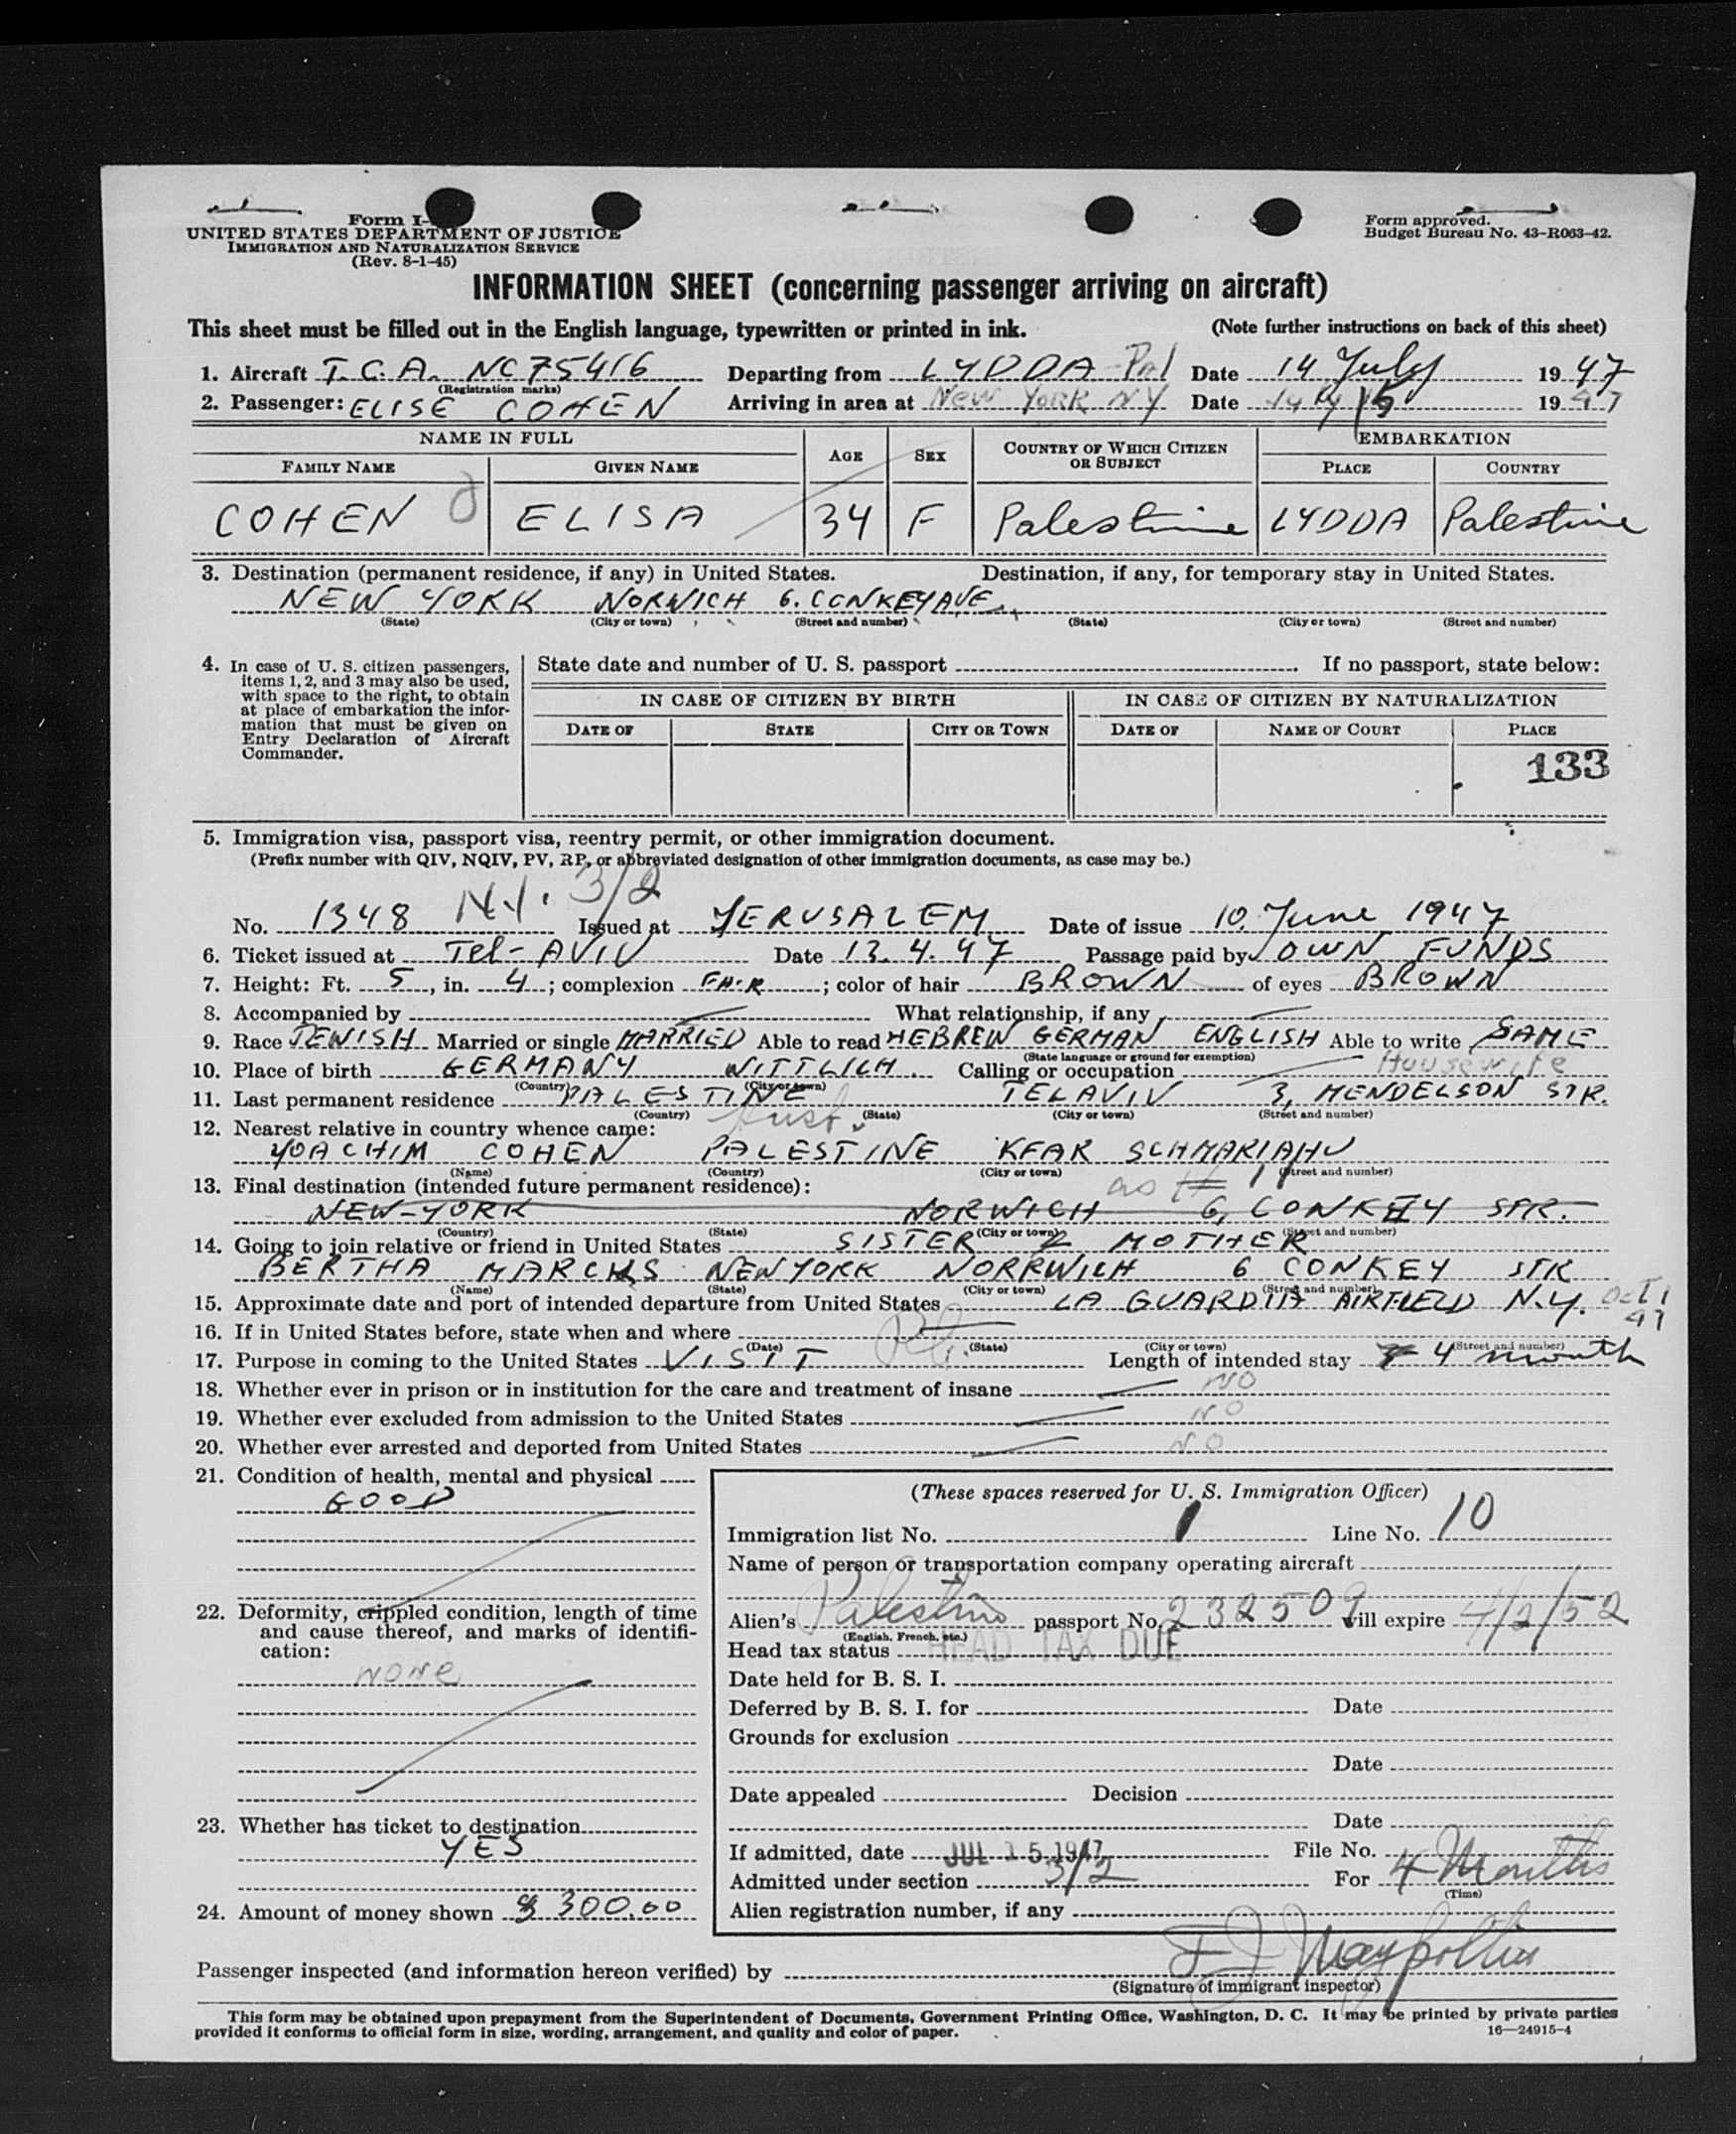 Form I-
UNITED STATES DEPARTMENT OF JUSTICE
IMMIGRATION AND NATURALIZATION SERVICE
(Rev. 8-1-45)
Form approved.
Budget Bureau No. 43-R063-42.
INFORMATION SHEET (concerning passenger arriving on aircraft)
This sheet must be filled out in the English language, typewritten or printed in ink. (Note further instructions on back of this sheet)
1. Aircraft T.C.A. NC75416 Departing from LYDDA Pal Date 14 July 1947
(Registration marks)
2. Passenger: ELISE COHEN Arriving in area at New York NY Date 1947
NAME IN FULL AGE SEX COUNTRY OF WHICH CITIZEN OR SUBJECT EMBARKATION
FAMILY NAME GIVEN NAME PLACE COUNTRY
COHEN ELISA 34 F Palestine LYDDA Palestine
3. Destination (permanent residence, if any) in United States. Destination, if any, for temporary stay in United States.
NEW YORK NORWICH 6. CONKEY AVE.
(State) (City or town) (Street and number) (State) (City or town) (Street and number)
4. In case of U. S. citizen passengers, items 1, 2, and 3 may also be used, with space to the right, to obtain at place of embarkation the information that must be given on Entry Declaration of Aircraft Commander.
State date and number of U. S. passport . If no passport, state below:
IN CASE OF CITIZEN BY BIRTH IN CASE OF CITIZEN BY NATURALIZATION
DATE OF STATE CITY OR TOWN DATE OF NAME OF COURT PLACE
133
5. Immigration visa, passport visa, reentry permit, or other immigration document.
(Prefix number with QIV, NQIV, PV, RP, or abbreviated designation of other immigration documents, as case may be.)
No. 1348 N.I. 3/2 Issued at YERUSALEM Date of issue 10. June 1947
6. Ticket issued at Tel-AVIV Date 13.4.47 Passage paid by OWN FUNDS
7. Height: Ft. 5, in. 4; complexion FAIR; color of hair BROWN of eyes BROWN
8. Accompanied by What relationship, if any
9. Race JEWISH Married or single MARRIED Able to read HEBREW GERMAN ENGLISH Able to write SAME
(State language or ground for exemption)
10. Place of birth GERMANY WITTLICH. Calling or occupation Housewife
(Country) (City or town)
11. Last permanent residence PALESTINE TELAVIV 3, MENDELSON STR.
(Country) (State) (City or town) (Street and number)
12. Nearest relative in country whence came: Husb.
YOACHIM COHEN PALESTINE KFAR SCHMARIAHU
(Name) (Country) (City or town) (Street and number)
13. Final destination (intended future permanent residence): as # 11
NEW-YORK NORWICH 6, CONKEY STR.
(Country) (State) (City or town) (Street and number)
14. Going to join relative or friend in United States SISTER & MOTHER
BERTHA MARCUS NEWYORK NORRWICH 6 CONKEY STR
(Name) (State) (City or town) (Street and number)
15. Approximate date and port of intended departure from United States LA GUARDIA AIRFIELD N.Y. Oct 1 47
16. If in United States before, state when and where
(Date) (State) (City or town) (Street and number)
17. Purpose in coming to the United States VISIT Length of intended stay 4 month
18. Whether ever in prison or in institution for the care and treatment of insane NO
19. Whether ever excluded from admission to the United States NO
20. Whether ever arrested and deported from United States NO
21. Condition of health, mental and physical
GOOD
22. Deformity, crippled condition, length of time and cause thereof, and marks of identification:
none
23. Whether has ticket to destination
YES
24. Amount of money shown $ 300.00
(These spaces reserved for U. S. Immigration Officer)
Immigration list No. 1 Line No. 10
Name of person or transportation company operating aircraft
Alien's Palestine passport No. 232509 will expire 4/2/52
(English, French, etc.)
Head tax status HEAD TAX DUE
Date held for B. S. I.
Deferred by B. S. I. for Date
Grounds for exclusion
Date
Date appealed Decision
Date
If admitted, date JUL 15 1947 File No.
Admitted under section 3/2 For 4 Months
(Time)
Alien registration number, if any
Passenger inspected (and information hereon verified) by
(Signature of immigrant inspector)
This form may be obtained upon prepayment from the Superintendent of Documents, Government Printing Office, Washington, D. C. It may be printed by private parties
provided it conforms to official form in size, wording, arrangement, and quality and color of paper. 16—24915-4